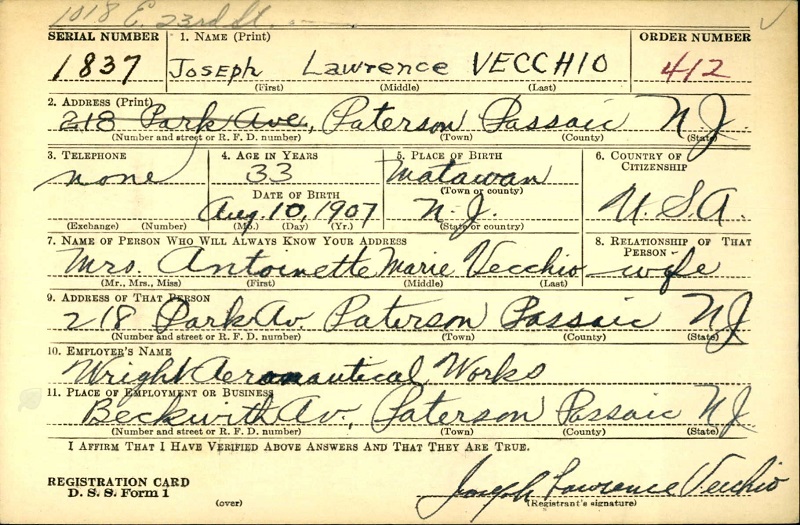 1018 E. 23rd St.
SERIAL NUMBER 1. NAME (Print) ORDER NUMBER
1837 JOSEPH Lawrence VECCHIO 412
(First) (Middle) (Last)
2. ADDRESS (Print)
218 Park Ave., Paterson Passaic NJ
(Number and street or R. F. D. number) (Town) (County) (State)
3. TELEPHONE 4. AGE IN YEARS 5. PLACE OF BIRTH 6. COUNTRY OF CITIZENSHIP
none 33 Matawan
(Town or county)
DATE OF BIRTH
Aug. 10, 1907 N. J. U. S. A.
(Exchange) (Number) (Mo.) (Day) (Yr.) (State or country)
7. NAME OF PERSON WHO WILL ALWAYS KNOW YOUR ADDRESS 8. RELATIONSHIP OF THAT PERSON
Mrs. Antoinette Marie Vecchio wife
(Mr., Mrs., Miss) (First) (Middle) (Last)
9. ADDRESS OF THAT PERSON
218 Park Av. Paterson Passaic NJ
(Number and street or R. F. D. number) (Town) (County) (State)
10. EMPLOYER'S NAME
Wright Aeronautical Works
11. PLACE OF EMPLOYMENT OR BUSINESS
Beckwith Av., Paterson Passaic NJ.
(Number and street or R. F. D. number) (Town) (County) (State)
I AFFIRM THAT I HAVE VERIFIED ABOVE ANSWERS AND THAT THEY ARE TRUE.
REGISTRATION CARD
D. S. S. Form 1 (over) Joseph Lawrence Vecchio
(Registrant's signature)